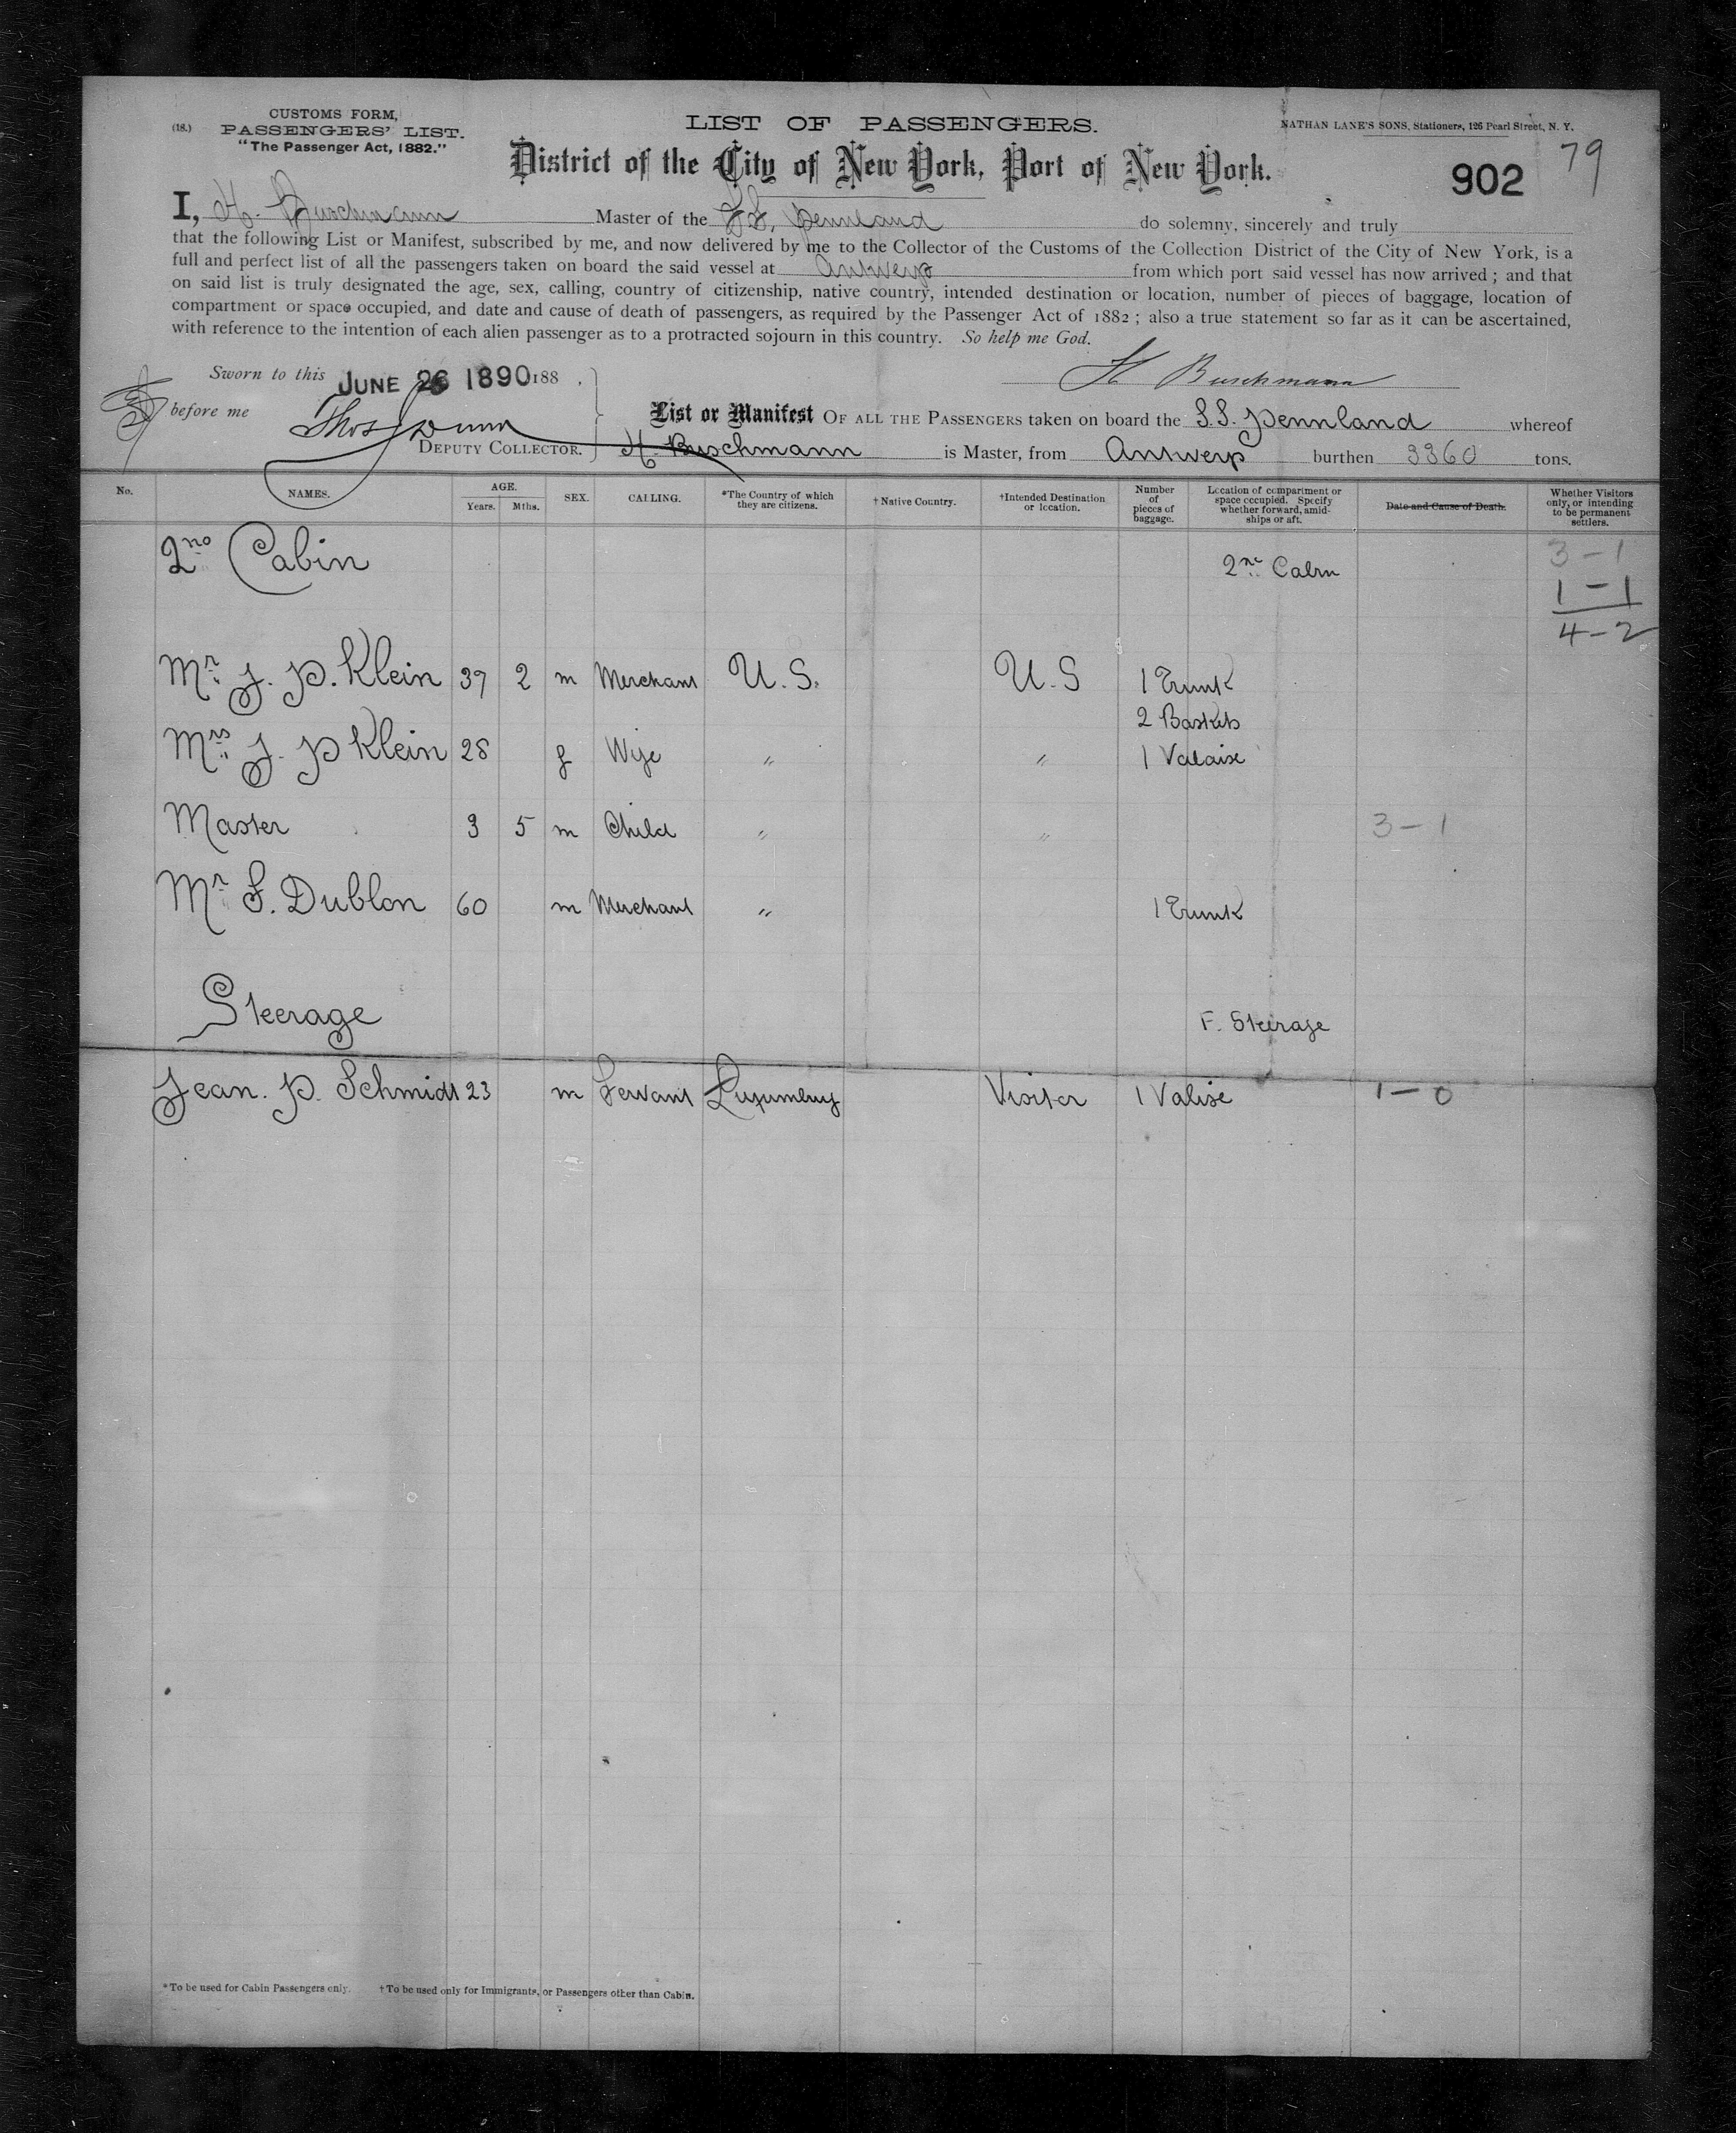 (18.) CUSTOMS FORM,
PASSENGERS' LIST.
"The Passenger Act, 1882."
LIST OF PASSENGERS.
NATHAN LANE'S SONS, Stationers, 126 Pearl Street, N. Y.
District of the City of New York, Port of New York.
902 79
I, H. Buschmann Master of the S.S. Pennland do solemny, sincerely and truly
that the following List or Manifest, subscribed by me, and now delivered by me to the Collector of the Customs of the Collection District of the City of New York, is a
full and perfect list of all the passengers taken on board the said vessel at Antwerp from which port said vessel has now arrived; and that
on said list is truly designated the age, sex, calling, country of citizenship, native country, intended destination or location, number of pieces of baggage, location of
compartment or space occupied, and date and cause of death of passengers, as required by the Passenger Act of 1882; also a true statement so far as it can be ascertained,
with reference to the intention of each alien passenger as to a protracted sojourn in this country. So help me God.
Sworn to this JUNE 26 1890 188 .
H Buschmann
before me Thos Dunn
DEPUTY COLLECTOR.
List or Manifest OF ALL THE PASSENGERS taken on board the S.S. Pennland whereof
H. Buschmann is Master, from Antwerp burthen 3360 tons.
No. NAMES. AGE. Years. Mths. SEX. CALLING. *The Country of which they are citizens. †Native Country. †Intended Destination or location. Number of pieces of baggage. Location of compartment or space occupied. Specify whether forward, amidships or aft. Date and Cause of Death. Whether Visitors only, or intending to be permanent settlers.
2nd Cabin 2nd Cabin 3-1
1-1
4-2
Mr J. P. Klein 37 2 m Merchant U.S. U.S 1 Trunk
2 Baskets
Mrs J. P Klein 28 f Wife " " 1 Valaise
Master 3 5 m Child " " 3-1
Mr S. Dublon 60 m Merchant " 1 Trunk
Steerage F. Steerage
Jean. P. Schmidt 23 m Servant Luxumburg Visitor 1 Valise 1-0
*To be used for Cabin Passengers only. †To be used only for Immigrants, or Passengers other than Cabin.